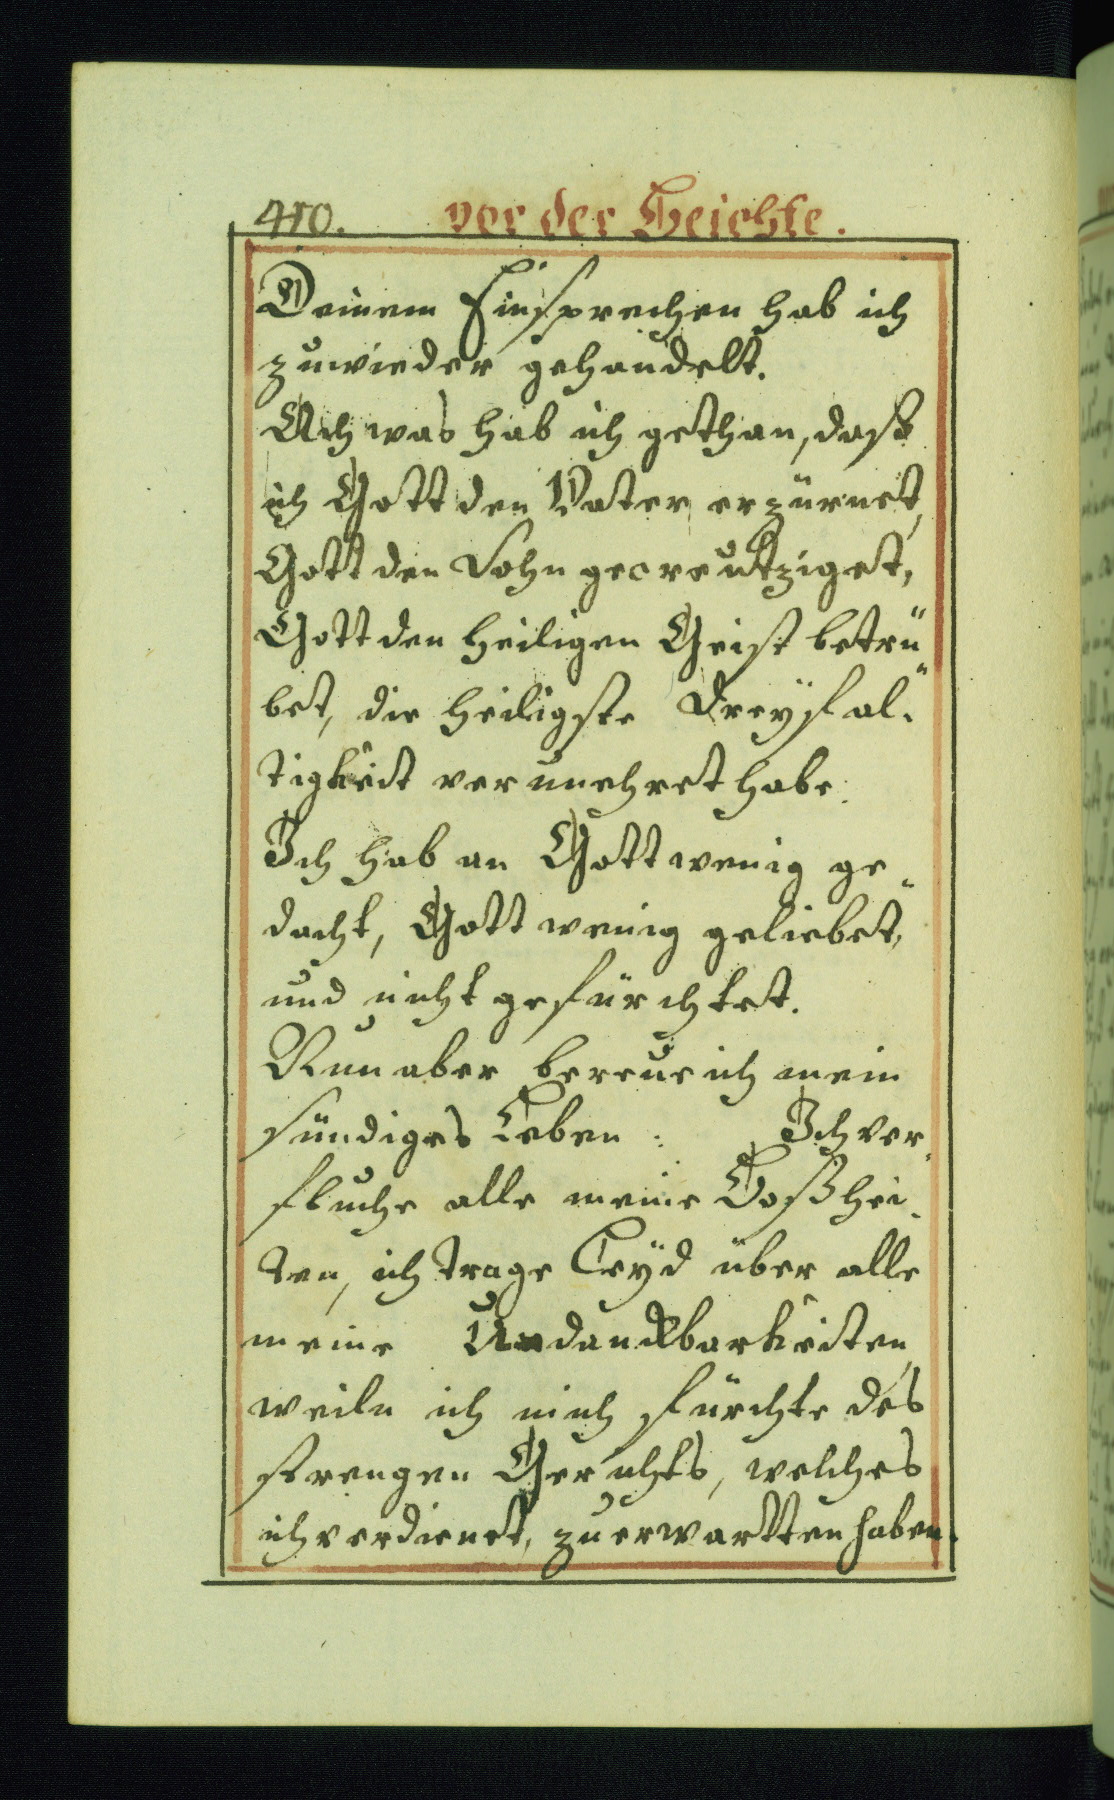 410. vor der Beichte.
Deinem Einsprechen hab ich
zuwieder gehandelt.
Ach was hab ich gethan, dass
ich Gott den Vater erzürnet,
Gott den Sohn gecreutziget,
Gott den Heiligen Geist betrü"
bet, die heiligste Dreyfal"
tigkeit verunehret habe.
Ich hab an Gott wenig ge"
dacht, Gott wenig geliebet,
und nicht gefürchtet.
Nun aber bereue ich mein
sündiges Leben : Ich ver"
fluche alle meine Boßhei"
ten, ich trage Leÿd über alle
meine Undanckbarkeiten,
weiln ich mich fürchte des
strengen Gerichts, welches
ich verdienet, zu erwartten haben.